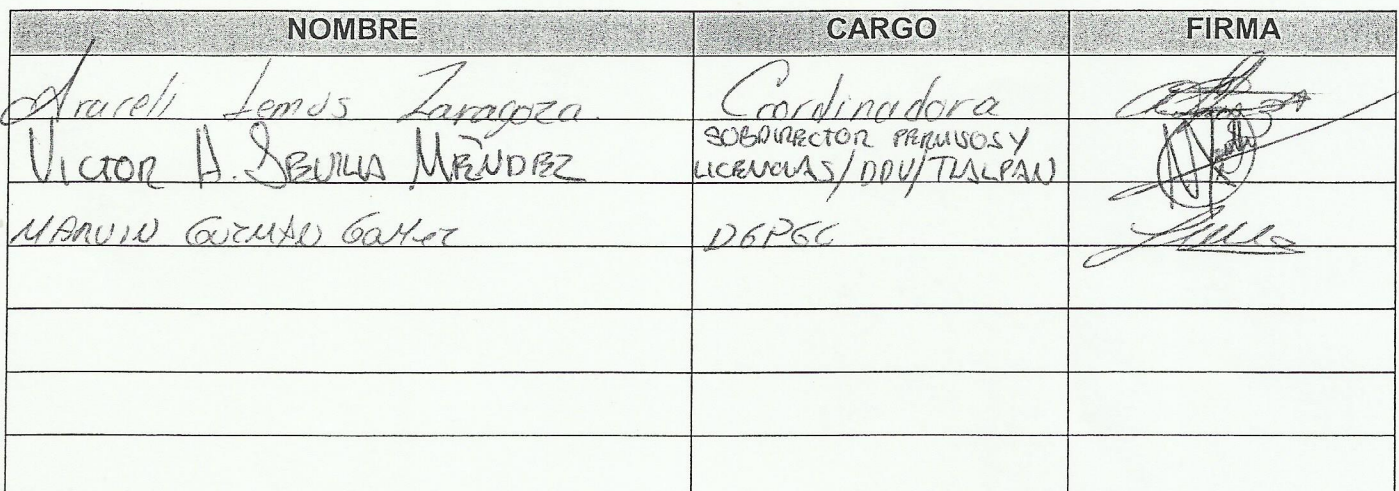 NOMBRE CARGO FIRMA
Araceli Lemus Zaragoza. Coordinadora
VICTOR A. SEVILLA MÉNDEZ SUBDIRECTOR PERMISOS Y
LICENCIAS/DDU/TLALPAN
MARVIN GUZMAN GOMEZ DGPEC